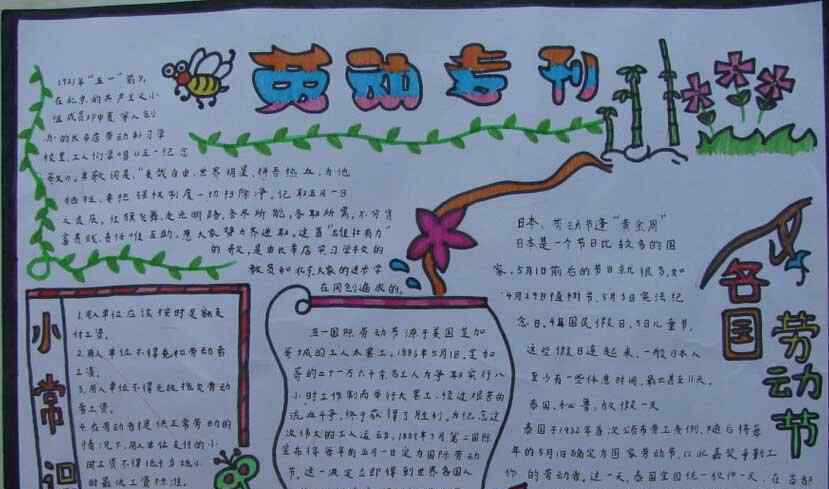 劳动专刊
1921年"五一"前夕,
在北京的共产主义小
组成员邓中夏等人创
办的长辛店劳动补习学
校里,工人们学唱《五一纪念
歌》。其歌词是:"美哉自由,世界明星,拼吾热血,为他
牺牲,要把强权制度一切扫除净,记取五月一日
之良辰。红旗飞舞,走光明路,各尽所能,各取所需,不分贫
富贵贱,责任唯互助,愿大家努力齐进取。这首"雄壮有力"
的歌,是由长辛店劳动实习学校的
教员和北京大家的进步学
在同创编成的。
小常识
1.用人单位应该按时足额支
付工资。
2.用人单位不得克扣劳动者
工资。
3.用人单位不得无故拖欠劳动
者工资。
4.在劳动者提供正常劳动的
情况下,用人单位支付的小
时工资不得低于当地小
时最低工资标准。
五一国际劳动节源于美国芝加
哥城的工人大罢工,1886年5月1日,芝加
哥的二十一万六千余名工人为争取实行八
小时工作制而举行大罢工,经过艰苦的
流血斗争,终于获得了胜利。为纪念这
次伟大的工人运动,1889年7月第二国际
宣布将每年的五月一日定为国际劳动
节。这一决定立即得到世界各国人
各国劳动节
日本,劳动节逢"黄金周"
日本是一个节日比较多的国
家,5月1日前后的节日就很多,如
4月29日植树节、5月3日宪法纪
念日,4日国民假日,5日儿童节,
这些假日连起来,一般日本人
至少有一些休息时间,最长甚至11天。
泰国,和鲁,放假一天
泰国于1932年首次颁布劳工条例,随后将每
年的5月1日确定为国家劳动节,以此嘉奖辛勤工
作的劳动者。这一天,泰国全国统一放假一天,在首都